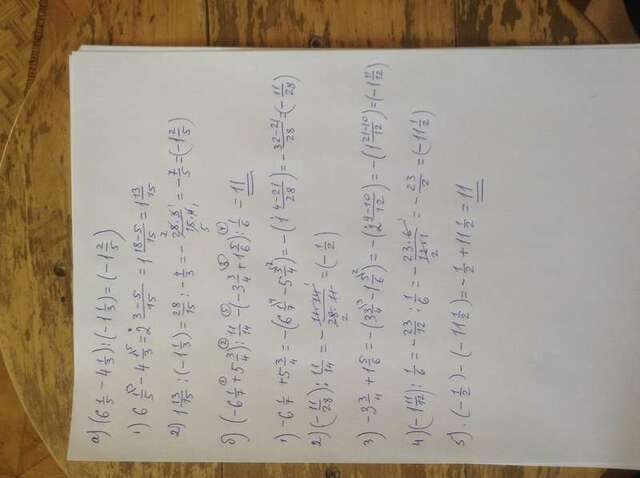 а) (6 1/5 - 4 1/3) : (-1 1/3) = (-1 2/5)
1) 6 1/5 - 4 1/3 = 2 3-5/15 = 1 18-5/15 = 1 13/15
2) 1 13/15 : (-1 1/3) = 28/15 : -4/3 = - 28·3/15·4 = - 7/5 = (-1 2/5)
б) (-6 1/7 + 5 3/4) : 11/14 - (-3 3/4 + 1 5/6) : 1/6 = 11
1) -6 1/7 + 5 3/4 = -(6 1/7 - 5 3/4) = -(1 4-21/28) = - 32-21/28 = (- 11/28)
2) (- 11/28) : 11/14 = - 11·14/28·11 = (- 1/2)
3) -3 3/4 + 1 5/6 = -(3 3/4 - 1 5/6) = -(2 9-10/12) = -(1 21-10/12) = (-1 11/12)
4) (-1 11/12) : 1/6 = - 23/12 : 1/6 = - 23·6/12·1 = - 23/2 = (-11 1/2)
5) (- 1/2) - (-11 1/2) = - 1/2 + 11 1/2 = 11